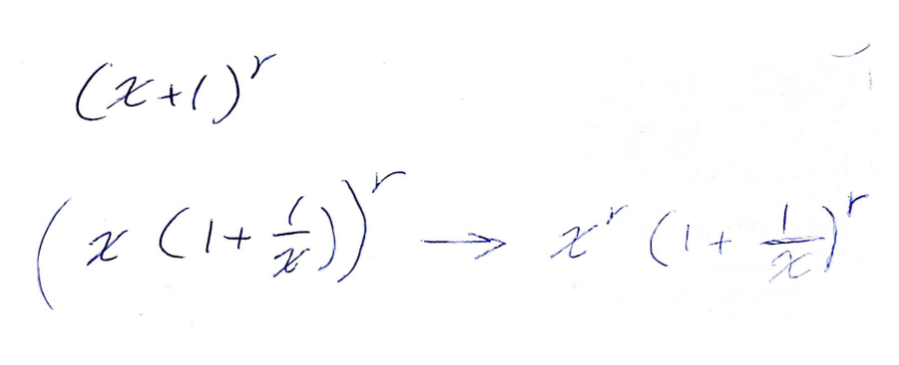 (x+1)^r
(x(1+1/x))^r → x^r(1+1/x)^r